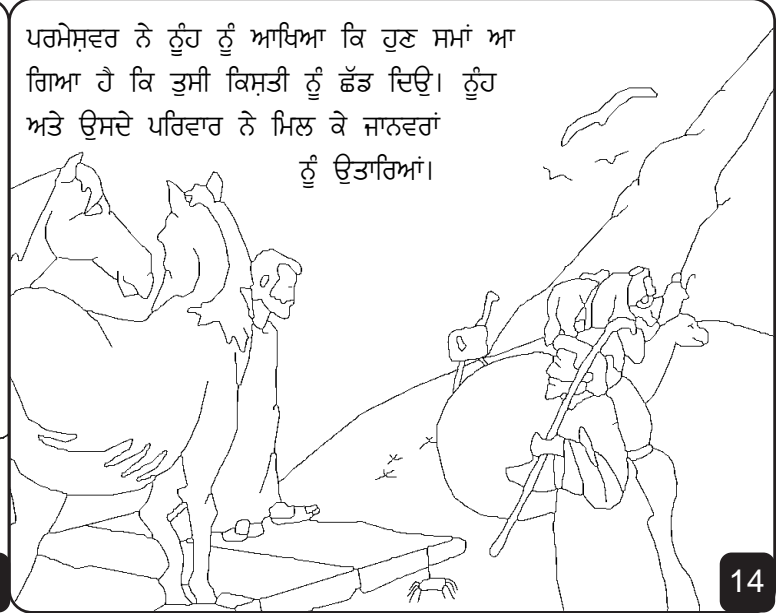 ਪਰਮੇਸ਼ਵਰ ਨੇ ਨੂੰਹ ਨੂੰ ਆਖਿਆ ਕਿ ਹੁਣ ਸਮਾਂ ਆ
ਗਿਆ ਹੈ ਕਿ ਤੁਸੀ ਕਿਸ਼ਤੀ ਨੂੰ ਛੱਡ ਦਿਉ। ਨੂੰਹ
ਅਤੇ ਉਸਦੇ ਪਰਿਵਾਰ ਨੇ ਮਿਲ ਕੇ ਜਾਨਵਰਾਂ
ਨੂੰ ਉਤਾਰਿਆਂ।
14